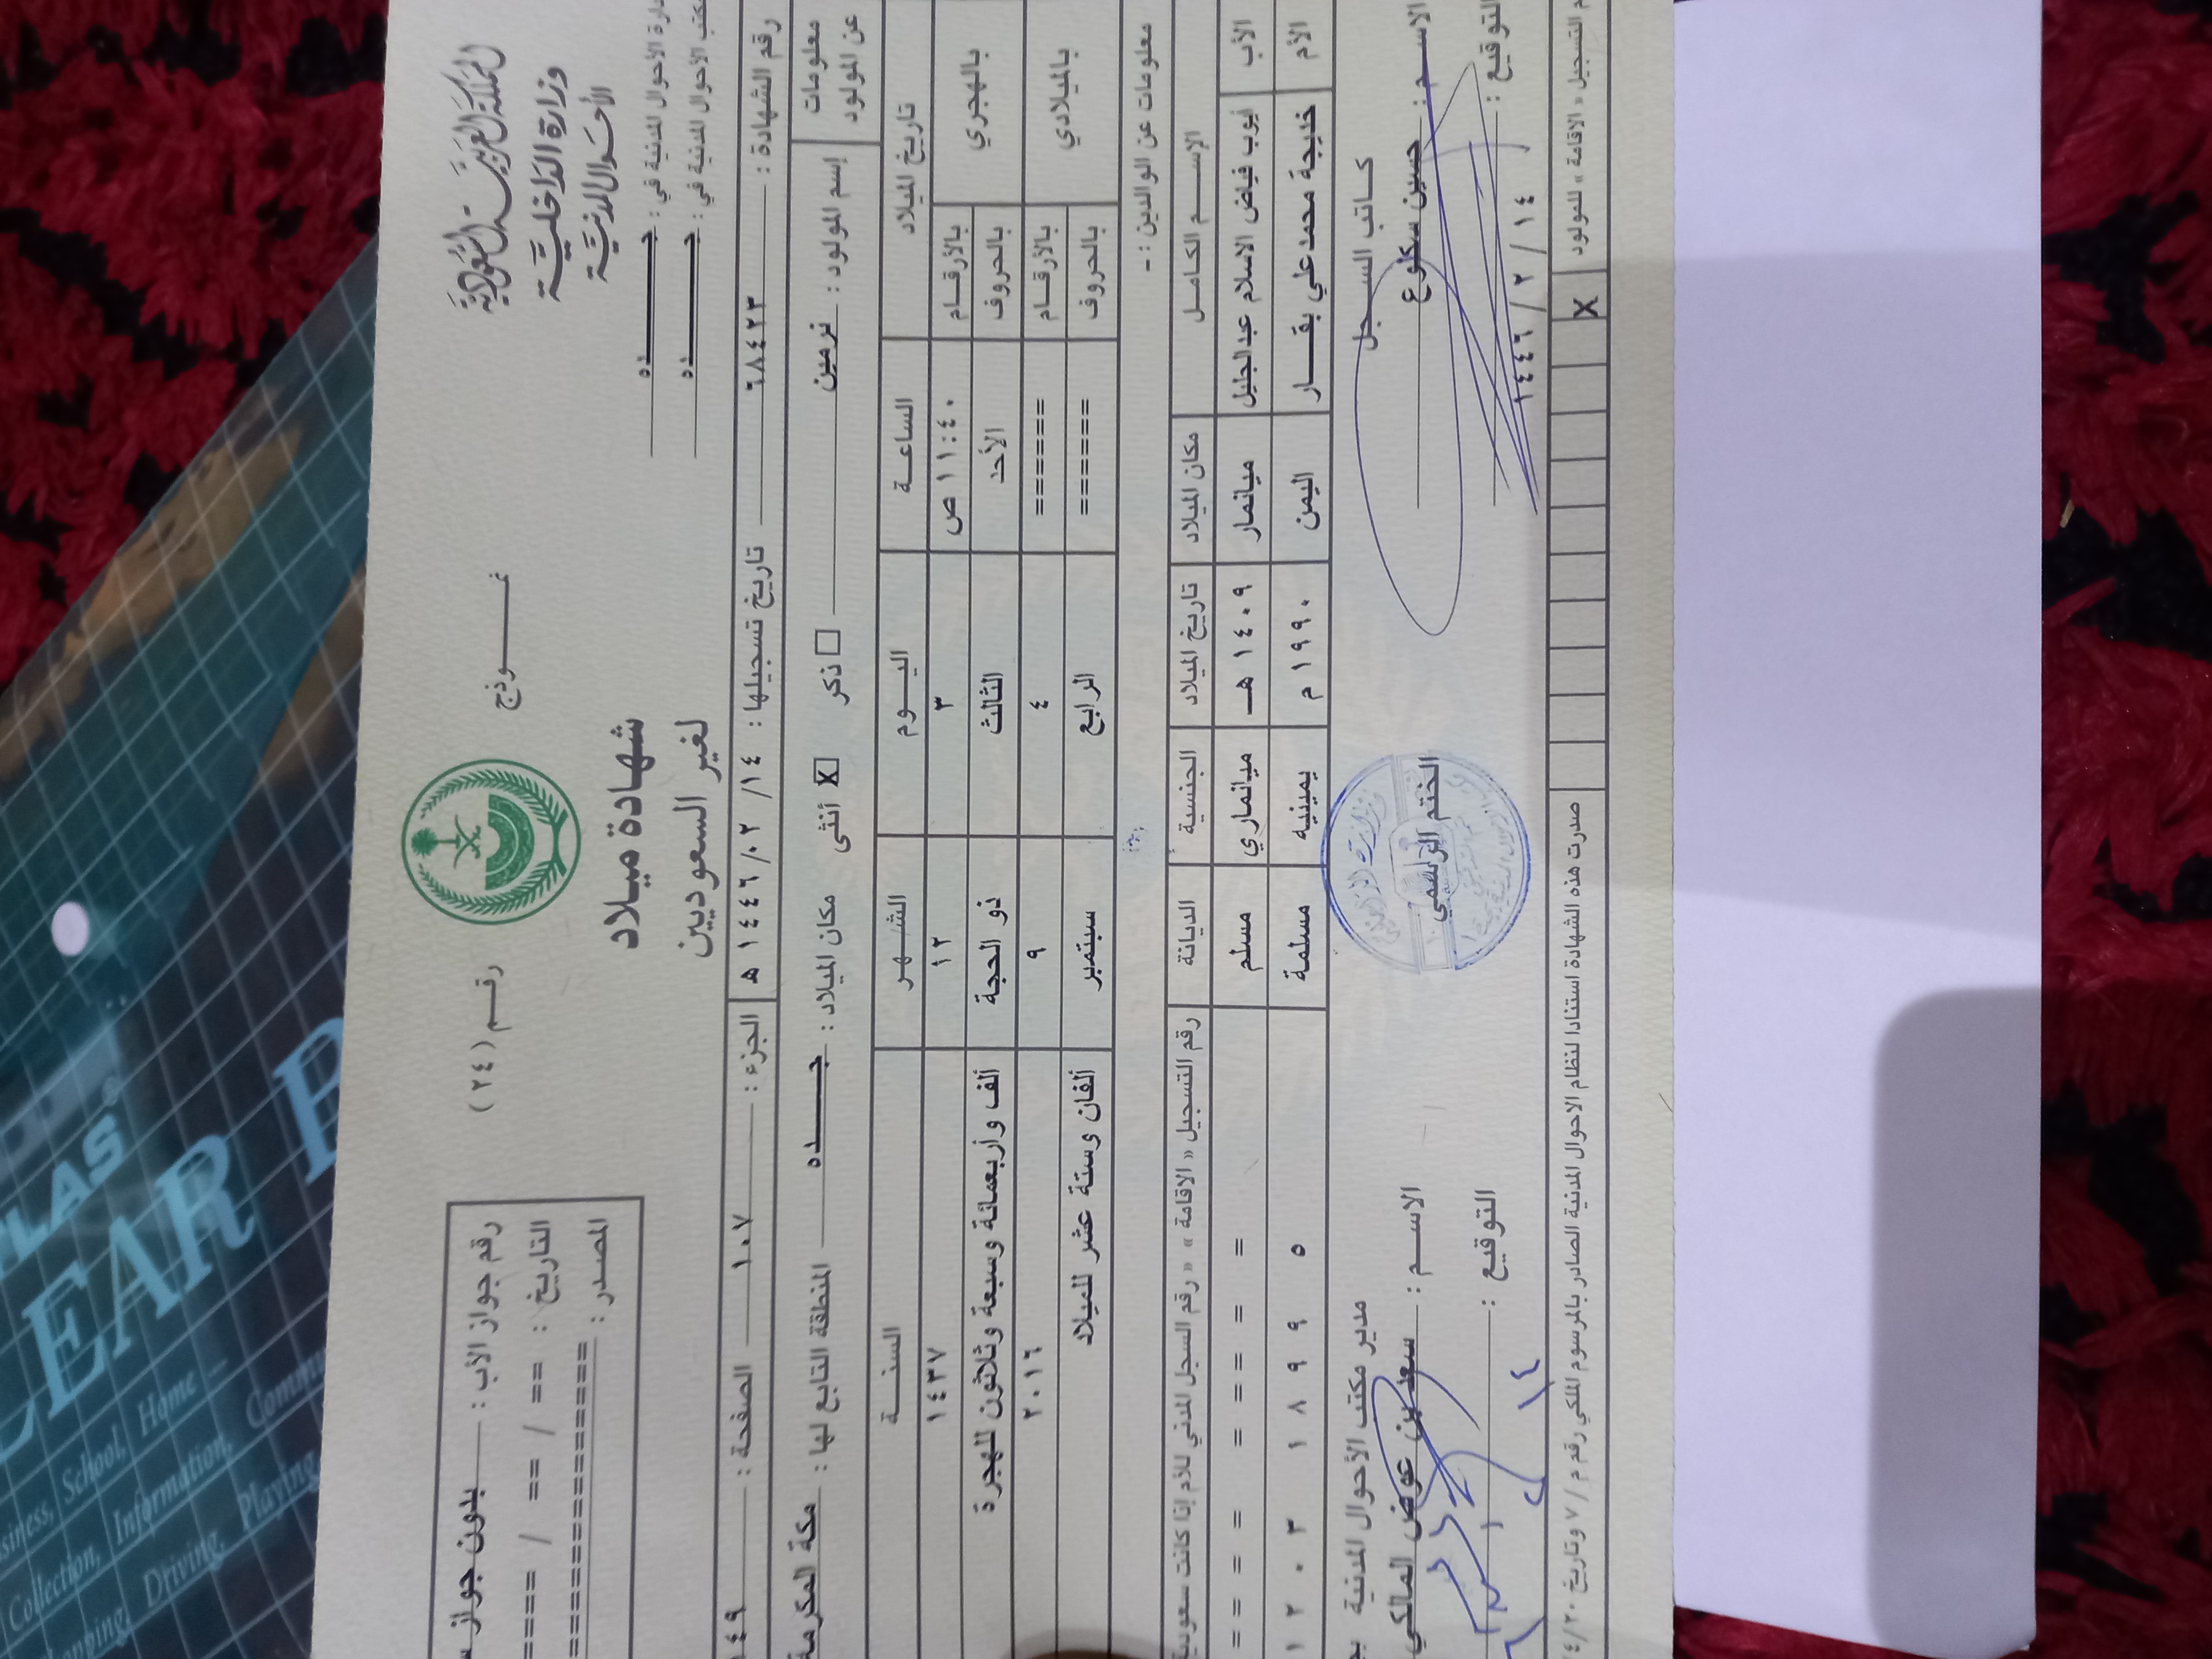 المملكة العربية السعودية
وزارة الداخلية
الأحوال المدنية
إدارة الأحوال المدنية في : جــــده
مكتب الأحوال المدنية في : جــــده
نمـــوذج
رقــم ( ٢٤ )
شهادة ميلاد
لغير السعوديين
رقم جواز الأب : بدون جواز
التاريخ : == / == / ====
المصدر : ================
رقم الشهادة : ٦٨٤٢٣ تاريخ تسجيلها : ١٤ /٠٢ /١٤٤٦ هـ الجزء : الصفحة : ١٠٧
معلومات عن المولود
إسم المولود : نرمين ذكر أنثى X مكان الميلاد : جــــده المنطقة التابع لها : مكة المكرمة
تاريخ الميلاد الساعـة اليــوم الشهـر السنــة
بالهجري بالأرقـام ١١:٤٠ ص ٣ ١٢ ١٤٣٧
بالحروف الأحد الثالث ذو الحجة ألف وأربعمائة وسبعة وثلاثون للهجرة
بالميلادي بالأرقـام ====== ٤ ٩ ٢٠١٦
بالحروف ====== الرابع سبتمبر ألفان وستة عشر للميلاد
معلومات عن الوالدين :-
الإســم الكامـل مكان الميلاد تاريخ الميلاد الجنسية الديانة رقم التسجيل « الاقامة » « رقم السجل المدني للأم إذا كانت سعودية
الأب أيوب فياض الاسلام عبدالجليل ميانمار ١٤٠٩ هـ ميانماري مسلم = = = = = = = =
الأم خديجة محمدعلي بقـــار اليمن ١٩٩٠ م يمينيه مسلمة ١ ٢ ٠ ٣ ١ ٨ ٩ ٩ ٥
كـاتب السـجل
الاســم : حسين سكلوع
التوقيع :
١٤ / ٢ / ١٤٤٦
الختم الرسمي
مدير مكتب الأحوال المدنية
الاســم : سعد بن عوض المالكي
التوقيع :
١٤
التسجيل « الاقامة » للمولود X
صدرت هذه الشهادة استنادا لنظام الاحوال المدنية الصادر بالمرسوم الملكي رقم م / ٧ وتاريخ ٤/٢٠
LAS
EAR
School, Home
Collection, Information,
Driving, Playing